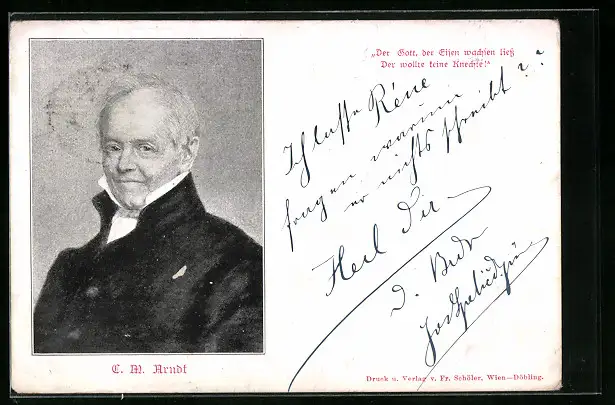 „Der Gott, der Eisen wachsen ließ
Der wollte keine Knechte!“
Ich lasse Réne
fragen warum
er nichts schreibt??
Heil Dir –
E. M. Arndt
Druck u. Verlag v. Fr. Schöler, Wien—Döbling.